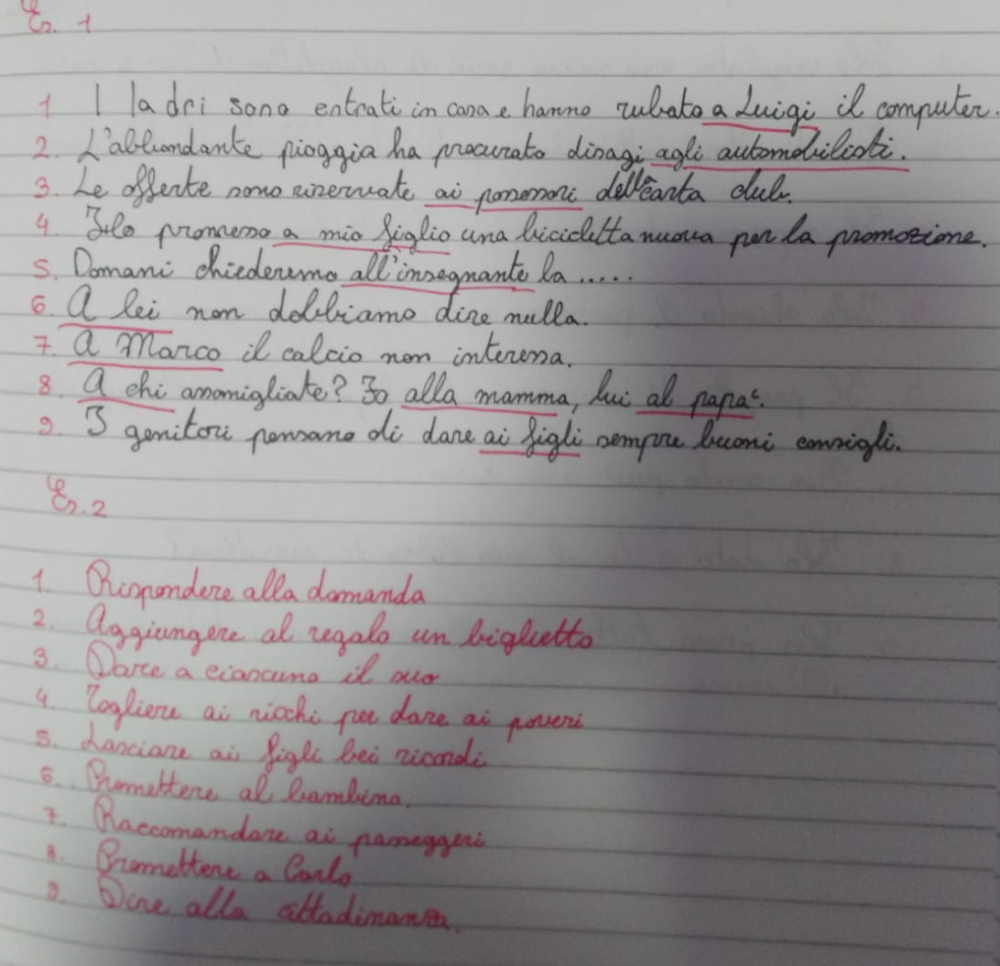 Es. 1
1 I ladri sono entrati in casa e hanno rubato a Luigi il computer.
2. L'abbondante pioggia ha procurato disagi agli automobilisti.
3. Le offerte sono riservate ai possessori della carta club.
4. Ho promesso a mio figlio una bicicletta nuova per la promozione.
5. Domani chiederemo all'insegnante la .....
6. A lei non dobbiamo dire nulla.
7. A Marco il calcio non interessa.
8. A chi assomigliate? Io alla mamma, lui al papà.
9. I genitori pensano di dare ai figli sempre buoni consigli.
Es. 2
1. Rispondere alla domanda
2. Aggiungere al regalo un biglietto
3. Dare a ciascuno il suo
4. Togliere ai ricchi per dare ai poveri
5. Lasciare ai figli bei ricordi
6. Promettere al bambino.
7. Raccomandare ai passeggeri
8. Promettere a Carlo
9. Dire alla cittadinanza.